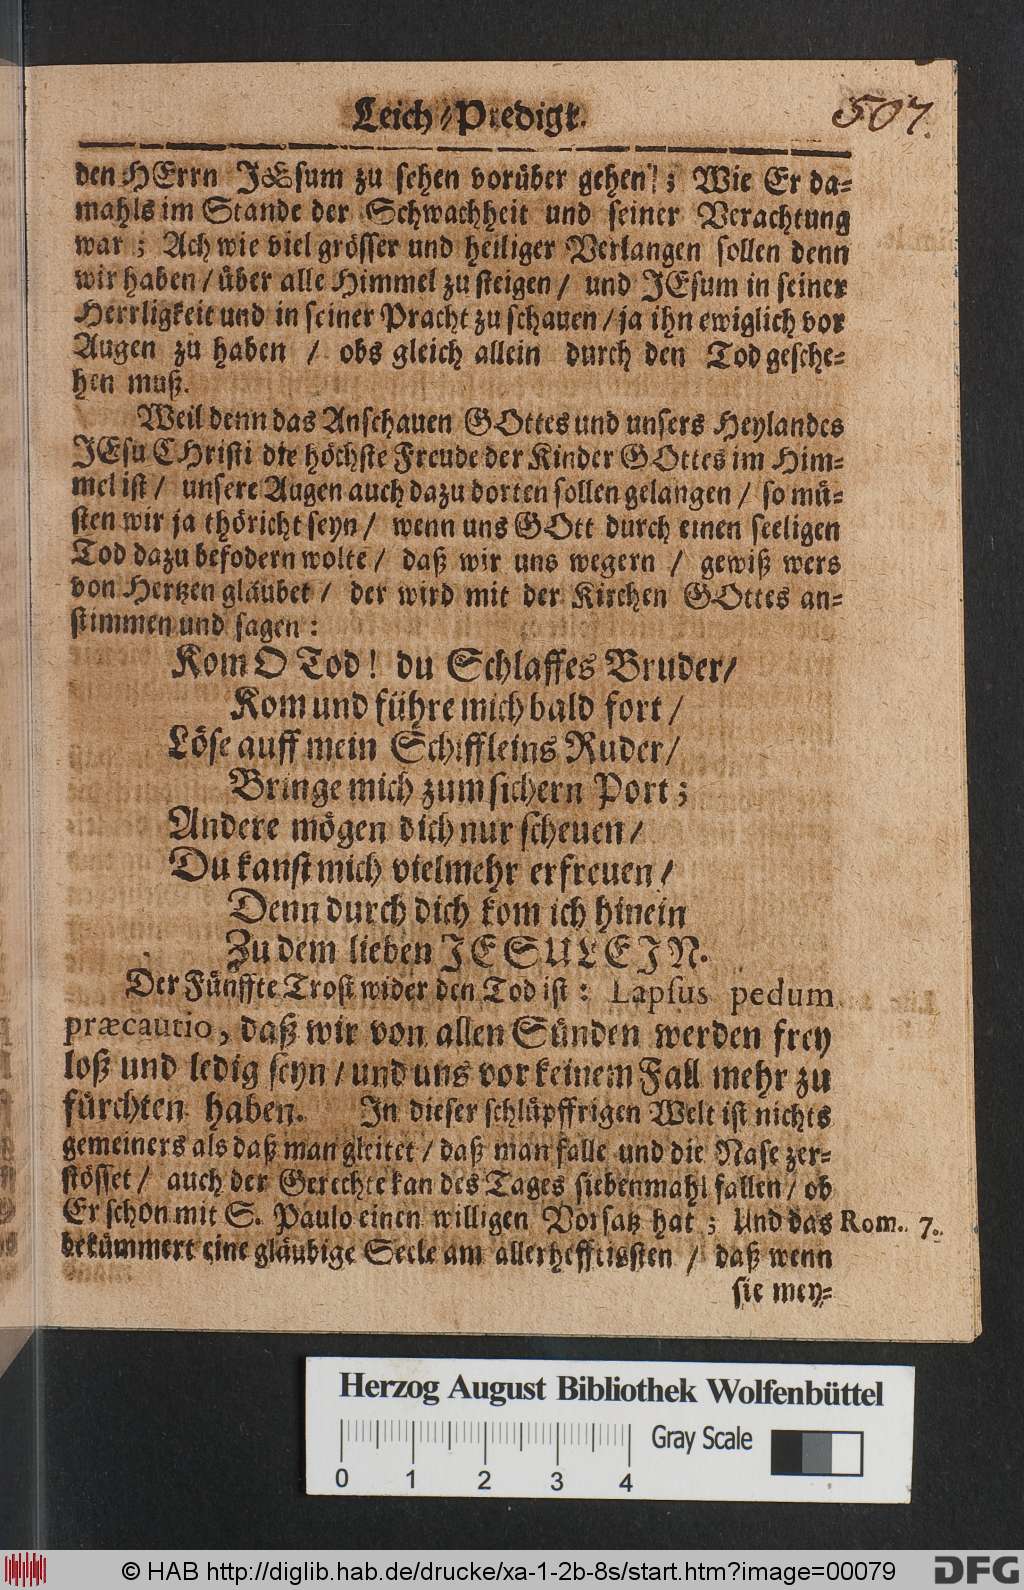 Leich-Predigt.
507.
den HErrn JEsum zu sehen vorüber gehen; Wie Er da-
mahls im Stande der Schwachheit und seiner Verachtung
war; Ach wie viel grösser und heiliger Verlangen sollen denn
wir haben / über alle Himmel zu steigen / und JEsum in seiner
Herrligkeit und in seiner Pracht zu schauen / ja ihn ewiglich vor
Augen zu haben / obs gleich allein durch den Tod gesche-
hen muß.
Weil denn das Anschauen GOttes und unsers Heylandes
JEsu CHristi die höchste Freude der Kinder GOttes im Him-
mel ist / unsere Augen auch dazu dorten sollen gelangen / so mü-
sten wir ja thöricht seyn / wenn uns GOtt durch einen seeligen
Tod dazu befodern wolte / daß wir uns wegern / gewiß wers
von Hertzen gläubet / der wird mit der Kirchen GOttes an-
stimmen und sagen:
Kom O Tod! du Schlaffes Bruder /
Kom und führe mich bald fort /
Löse auff mein Schiffleins Ruder /
Bringe mich zum sichern Port;
Andere mögen dich nur scheuen /
Du kanst mich vielmehr erfreuen /
Denn durch dich kom ich hinein
Zu dem lieben JESULEJN.
Der Fünffte Trost wider den Tod ist: Lapsus pedum
præcautio, daß wir von allen Sünden werden frey
loß und ledig seyn / und uns vor keinem Fall mehr zu
fürchten haben. In dieser schlüpffrigen Welt ist nichts
gemeiners als daß man gleitet / daß man falle und die Nase zer-
stösset / auch der Gerechte kan des Tages siebenmahl fallen / ob
Er schon mit S. Paulo einen willigen Vorsatz hat; Und das Rom. 7.
bekümmert eine gläubige Seele am allerhefftigsten / daß wenn
sie mey-
Herzog August Bibliothek Wolfenbüttel
Gray Scale
0 1 2 3 4
© HAB http://diglib.hab.de/drucke/xa-1-2b-8s/start.htm?image=00079
DFG